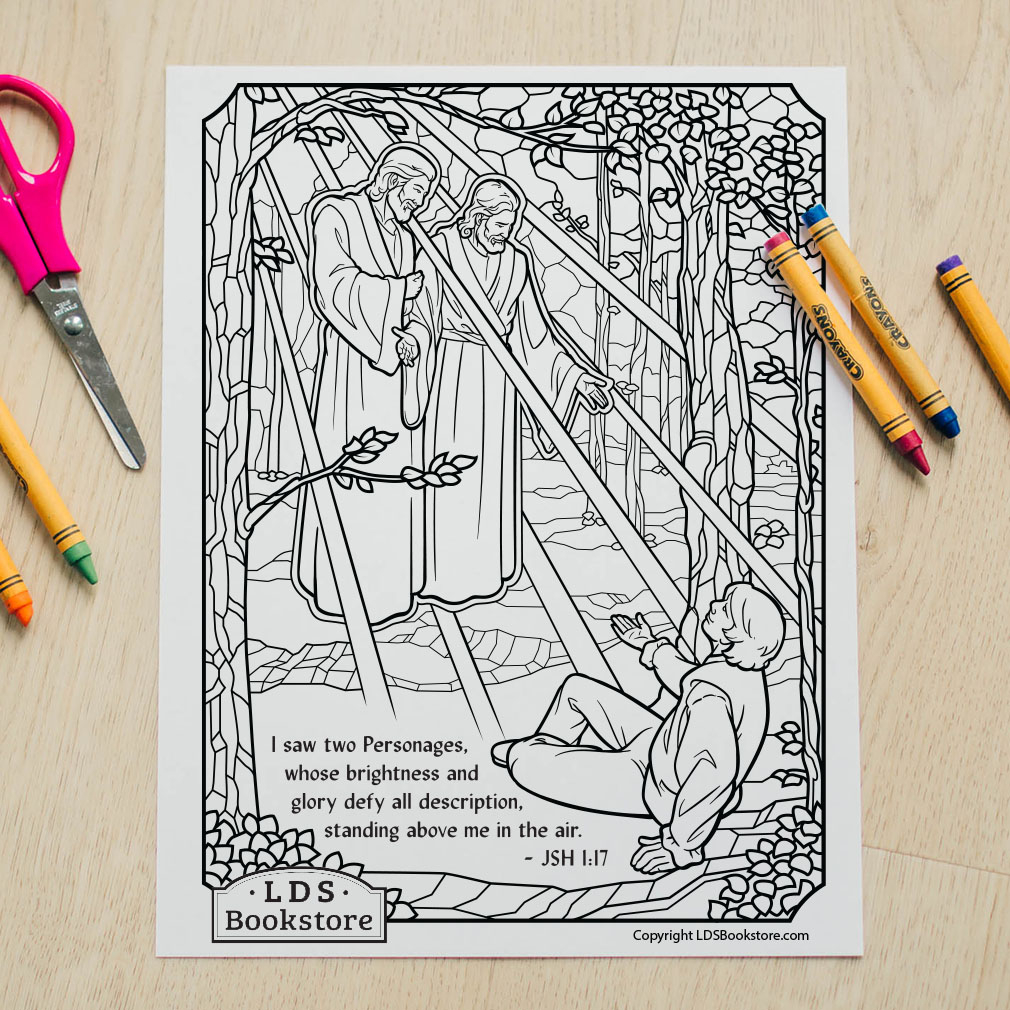 I saw two Personages,
whose brightness and
glory defy all description,
standing above me in the air.
- JSH 1:17
· LDS ·
Bookstore
Copyright LDSBookstore.com
CRAYONS
CRAYONS